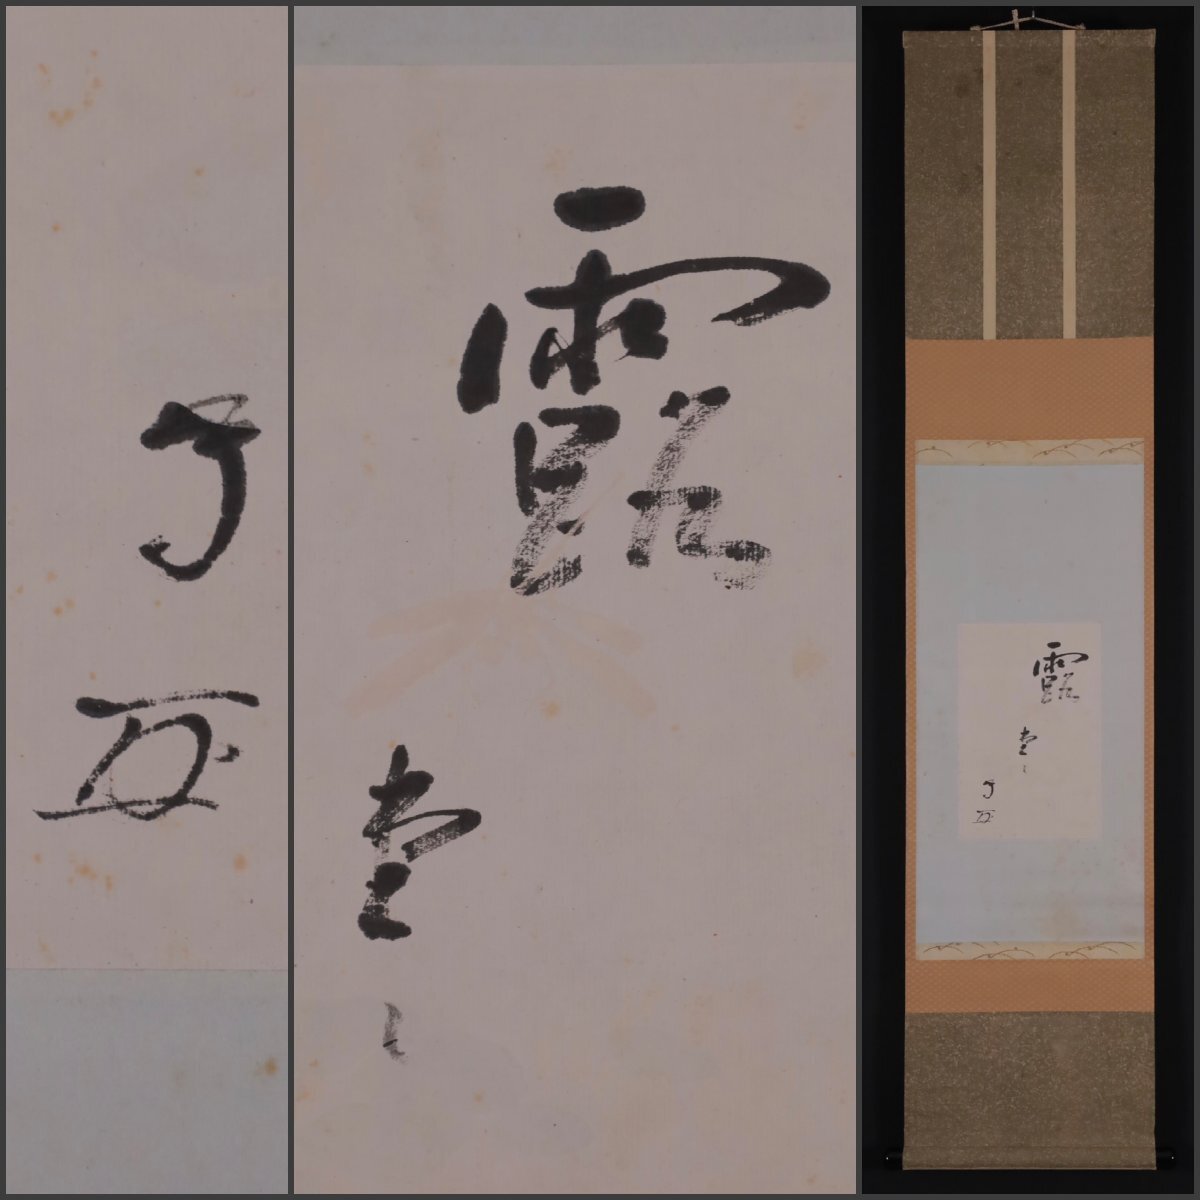 露堂々